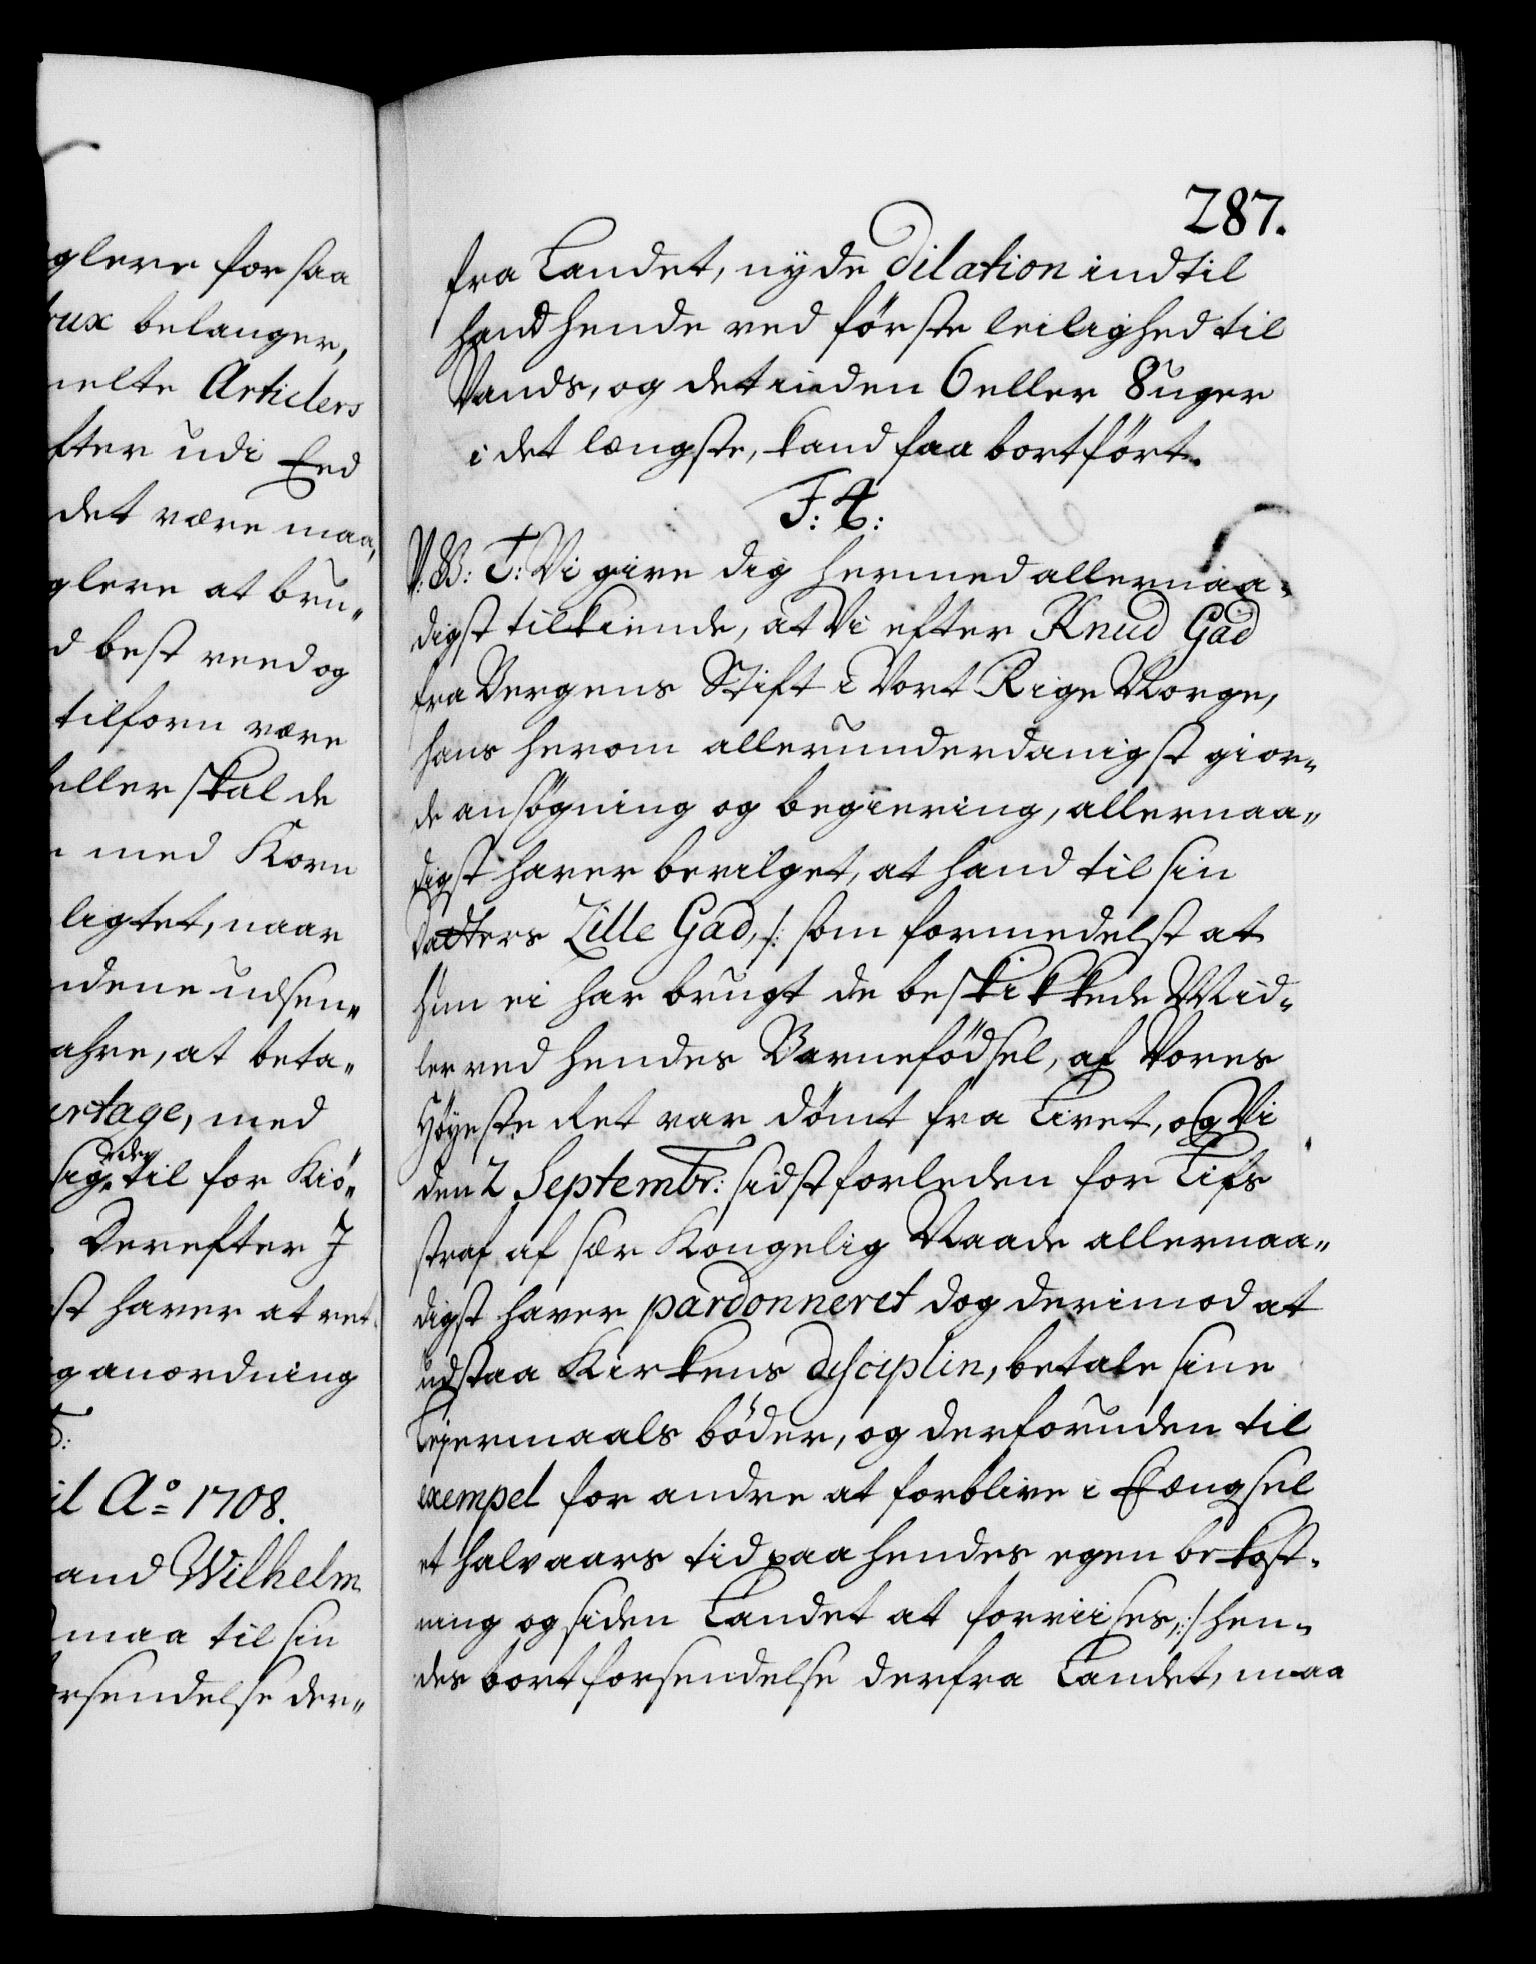 glere for saa
rux belanger,
melte Articlers
fter udi End
det være maa,
glere at bru„
d best reed og
tilforn være
eller skal de
med Korn
ligtet, naar
ndene udsen„
ahre, at beta„
artage, med
sig eder til for Kiö„
Derefter I
st haver at ret„
g anordning
il Ao 1708.
and Wilhelm
maa til sin
rsendelse der„
287.
fra Landet, nyde Dilation indtil
hand hende ved förste leilighed til
Vands, og det inden 6 eller 8 uger
i det længste, kand faa bortfört.
F: 4:
V. G: T: Vi give dig hermed allernaa„
digst tilkiende, at Vi efter Knud Gad
fra Bergens Stift i Vort Rige Norge,
hans herom allerunderdanigst gior„
de ansögning og begiering, allernaa„
digst haver bevilget, at hand til sin
Datters Zille Gad, /: som formedelst at
hun ei har brugt de beskikkede Mid„
ler ved hendes Barnefödsel, af Vores
Höyeste Ret var dömt fra Livet, og Vi
den 2 Septembr: sidstforleden for Lifs
straf af sær Kongelig Naade allernaa„
digst haver pardonneret dog derimod at
udstaa Kirkens disciplin, betale sine
Lejermaals böder, og derforuden til
exempel for andre at forblive i Fængsel
et halvaars tid paa hendes egen bekost„
ning og siden Landet at forviises, :/ hen„
des bortforsendelse derfra Landet, maa